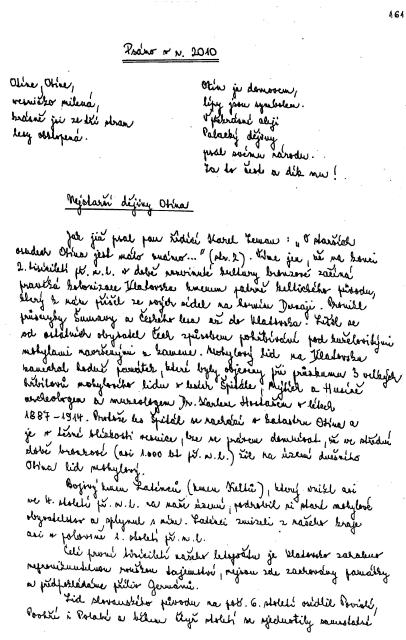 161
Psáno v r. 2010
Otíne, Otíne,
vesničko milená,
krásně jsi ze tří stran
lesy obklopená.
Otín je domovem,
lípy jsou symbolem.
V překrásné aleji
Palacký dějiny
psal svému národu.
Za to čest a dík mu!
Nejstarší dějiny Otína
Jak již psal pan řídící Karel Zeman: „O starších
osudech Otína jest málo známo..." (str. 2). Víme jen, že na konci
2. tisíciletí př. n. l. v době rozvinuté kultury bronzové začíná
pravěká kolonizace Klatovska kmenem patrně keltického původu,
který k nám přišel ze svých sídel na horním Dunaji. Pronikl
průsmyky Šumavy a Českého lesa až do Klatovska. Lišil se
od ostatních obyvatel Čech způsobem pohřbívání pod kuželovitými
mohylami navršenými z kamene. Mohylový lid na Klatovsku
zanechal hodně památek, které byly objeveny při průzkumu 3 velkých
hřbitovů mohylového lidu v lesích Špitále, Mýtich a Husíně
archeologem a muzeologem Dr. Karlem Hostašem v létech
1887-1914. Protože les Špitál se nachází v katastru Otína a
je v těsné blízkosti vesnice, lze se právem domnívat, že ve střední
době bronzové (asi 1.000 let př. n. l.) žil na území dnešního
Otína lid mohylový.
Bojivý kmen Laténců (kmen Keltů), který vnikl asi
ve 4. století př. n. l. na naše území, podrobil si staré mohylové
obyvatelstvo a splynul s ním. Laténci zmizeli z našeho kraje
asi v polovině 1. století př. n. l.
Celé první tisíciletí našeho letopočtu je Klatovsko zahaleno
neproniknutelnou rouškou tajemství, nejsou zde zachovány památky
a předpokládáme příliv Germánů.
Lid slovanského původu na poč. 6. století osídlil Povltaví,
Poohří i Polabí a během čtyř století se sjednotily samostatné